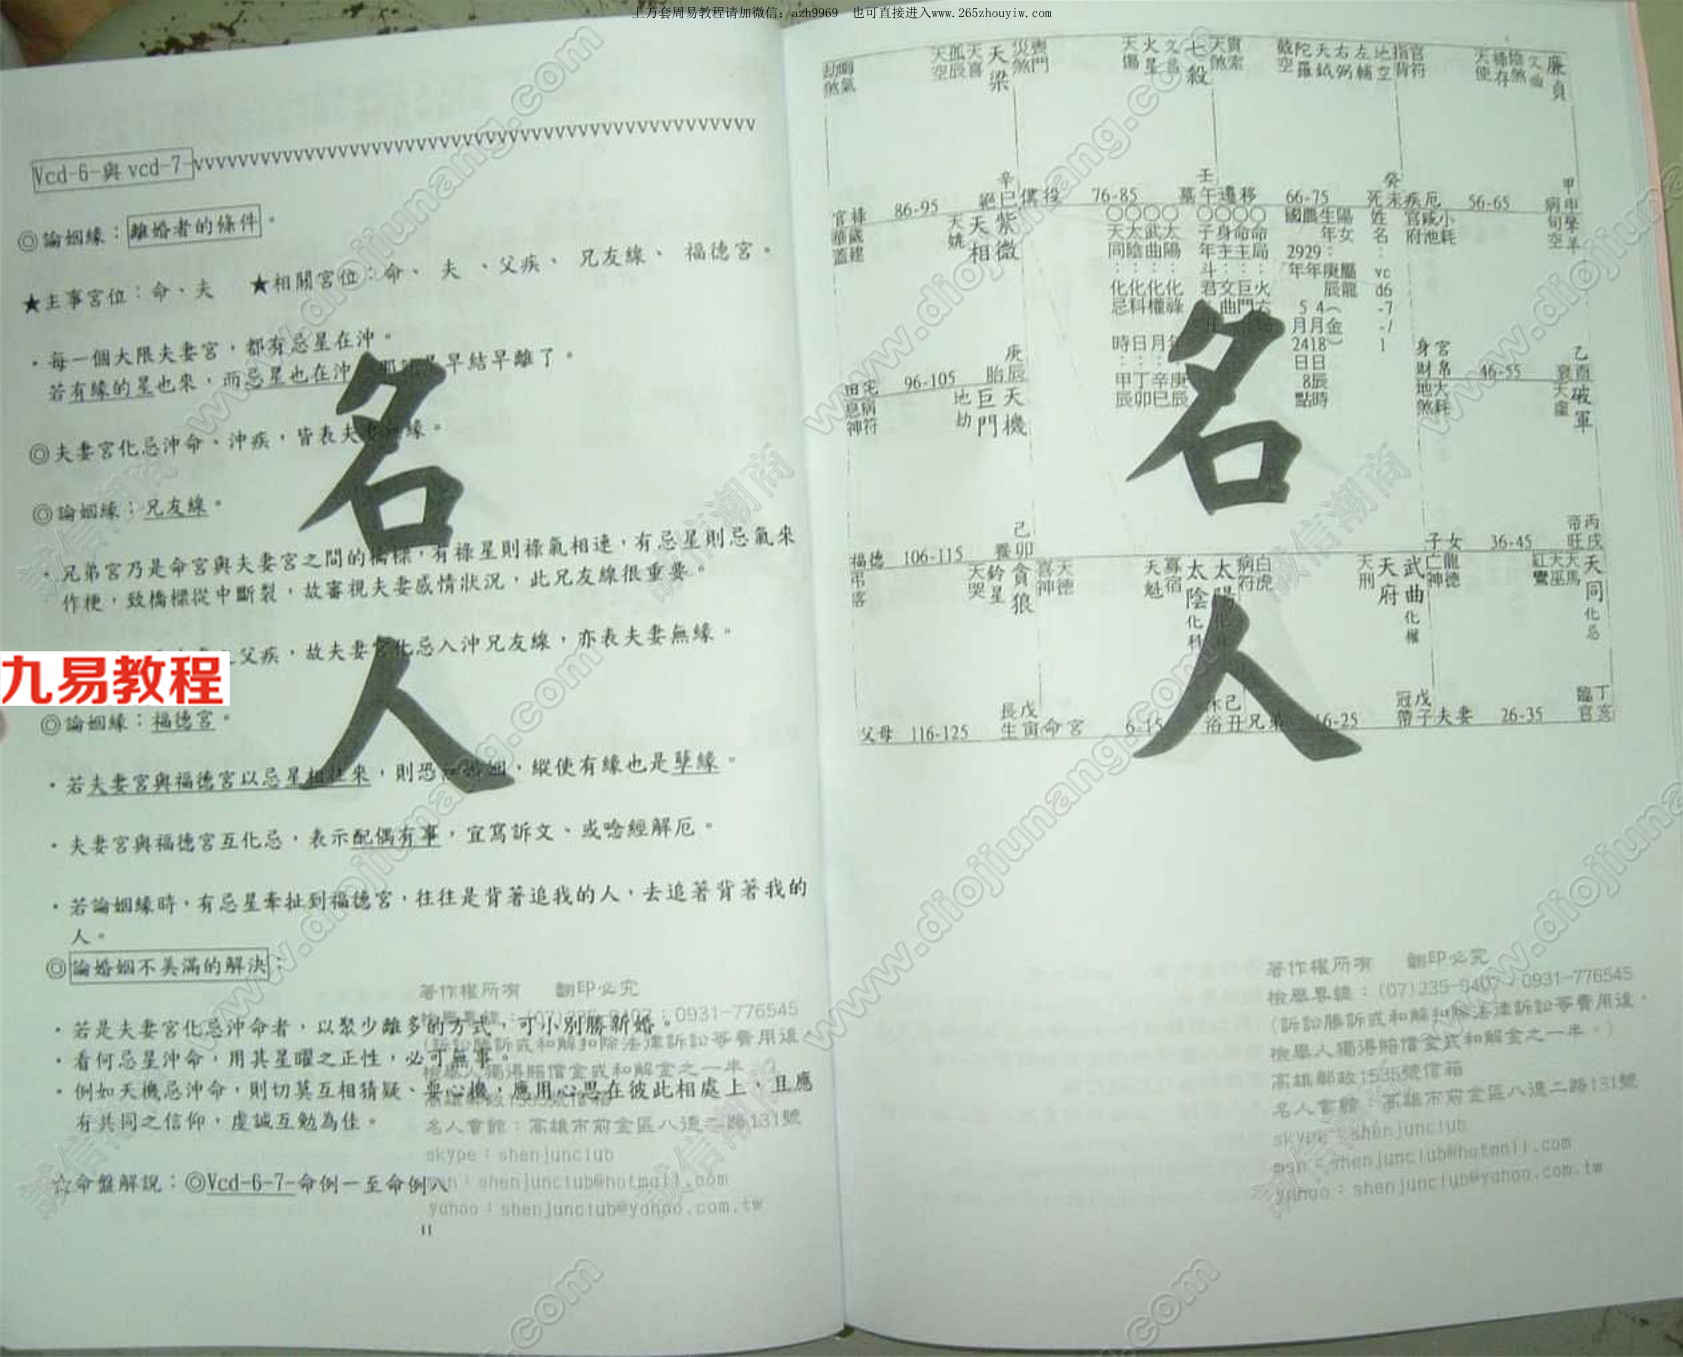 上万套周易教程请加微信：azh9969 也可直接进入www.265zhouyiw.com
Vcd-6-與vcd-7-vvvvvvvvvvvvvvvvvvvvvvvvvvvvvvvvvvvvvvvvvvvvvvvv
◎論姻緣：離婚者的條件。
★主事宮位：命、夫 ★相關宮位：命、 夫 、父疾、 兄友線、 福德宮。
・每一個大限夫妻宮，都有忌星在沖。
若有緣的星也來，而忌星也在沖 早結早離了。
◎夫妻宮化忌沖命、沖疾，皆表夫 緣。
◎論姻緣：兄友線。
・兄弟宮乃是命宮與夫妻宮之間的橋樑，有祿星則祿氣相連，有忌星則忌氣來
作梗，致橋樑從中斷裂，故審視夫妻感情狀況，此兄友線很重要。
父疾，故夫妻宮化忌入沖兄友線，亦表夫妻無緣。
九易教程
◎論姻緣：福德宮。
・若夫妻宮與福德宮以忌星相往來，則恐 姻，縱使有緣也是孽緣。
・夫妻宮與福德宮互化忌，表示配偶有事，宜寫訴文、或唸經解厄。
・若論姻緣時，有忌星牽扯到福德宮，往往是背著追我的人，去追著背著我的
人。
◎論婚姻不美滿的解決：
・若是夫妻宮化忌沖命者，以聚少離多的方式，可小別勝新婚。
・看何忌星沖命，用其星曜之正性，必可無事。
・例如天機忌沖命，則切莫互相猜疑、耍心機，應用心思在彼此相處上，且應
有共同之信仰，虔誠互勉為佳。
☆命盤解說：◎Vcd-6-7-命例一至命例八
11
名人
著作權所有 翻印必究
檢舉專線：(07)235-9407，0931-776545
(訴訟勝訴或和解扣除法律訴訟等費用後，
檢舉人獨得賠償金或和解金之一半。)
高雄郵政1535號信箱
名人會館：高雄市前金區八德二路131號
skype：shenjunclub
msn：shenjunclub@hotmail.com
yahoo：shenjunclub@yahoo.com.tw
天空 孤辰 天喜 天梁 災煞 喪門
天傷 火星 文昌 七殺 天煞 貫索
截空 陀羅 天鉞 右弼 左輔 地空 指背 官符
天使 祿存 陰煞 廉貞
86-95 辛巳 絕 僕役
76-85 壬午 墓 遷移
66-75 癸未 死 疾厄
56-65 甲申 病
官祿 歲建 華蓋 天姚 天相 紫微
天同：化忌
太陰：化科
武曲：化權
太陽：化祿
子年斗君
身主：文曲
命主：巨門
國曆 29年5月24日 8點
農曆生 29年4月18日辰時
陽女 庚辰 屬龍
姓名：vcd6-7-1
時：甲辰
日：丁卯
月：辛巳
年：庚辰
官府 咸池 小耗 旬空 擎羊
田宅 96-105 庚辰 胎
身宮 財帛 46-55 乙酉 衰
息神 病符 地劫 巨門 天機
地煞 大耗 天虛 破軍
福德 106-115 己卯 養
子女 36-45 丙戌 帝旺
弔客 天哭 鈴星 貪狼 喜神 天德
天魁 寡宿 太陰化科 太陽 病符 白虎
天刑 天府 武曲化權 亡神 龍德
紅鸞 天巫 天馬 天同化忌
父母 116-125 戊寅 長生 命宮
6-15 己丑 沐浴 兄弟
16-25 戊子 冠帶 夫妻
26-35 丁亥 臨官
名人
著作權所有 翻印必究
檢舉專線：(07)235-9407，0931-776545
(訴訟勝訴或和解扣除法律訴訟等費用後，
檢舉人獨得賠償金或和解金之一半。)
高雄郵政1535號信箱
名人會館：高雄市前金區八德二路131號
skype：shenjunclub
msn：shenjunclub@hotmail.com
yahoo：shenjunclub@yahoo.com.tw
www.diojiunang.com
誠信潮商